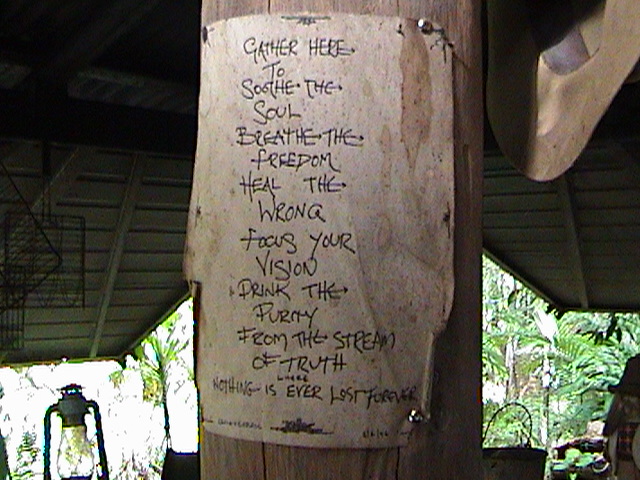 GATHER HERE
TO
SOOTHE THE
SOUL
BREATHE THE
FREEDOM
HEAL THE
WRONG
FOCUS YOUR
VISION
DRINK THE
PURITY
FROM THE STREAM
OF TRUTH
WHERE
NOTHING IS EVER LOST FOREVER